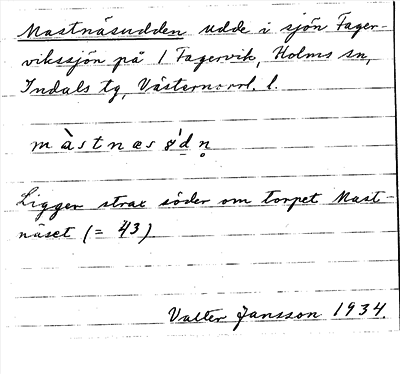 Mastnäsudden udde i sjön Fager-
vikssjön på 1 Fagervik, Holms sn,
Indals tg, Västernorrl. l.
màstnæs ǿdn̥
Ligger strax söder om torpet Mast-
näset (= 43).
Valter Jansson 1934.